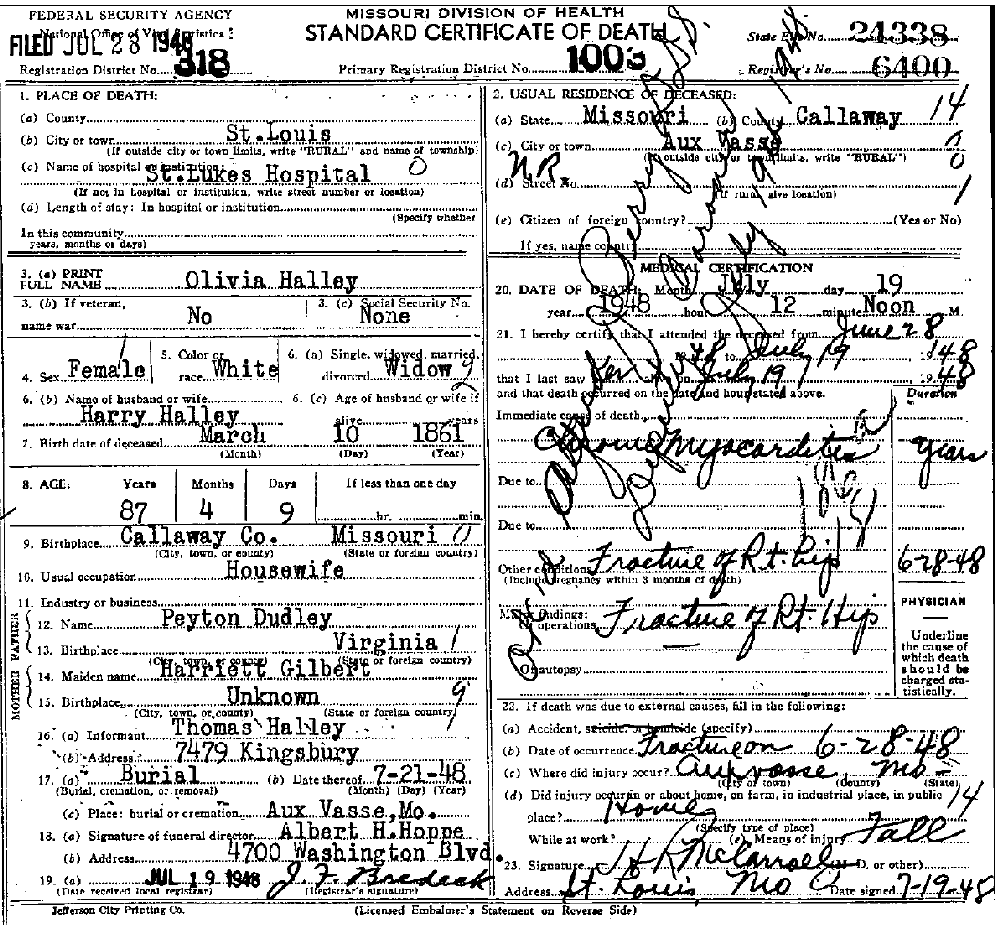 FEDERAL SECURITY AGENCY
National Office of Vital Statistics
FILED JUL 28 1948
Registration District No. 318
MISSOURI DIVISION OF HEALTH
STANDARD CERTIFICATE OF DEATH
Primary Registration District No. 1003
State File No. 24338
Registrar's No. 6400
1. PLACE OF DEATH:
(a) County
(b) City or town St.Louis
(If outside city or town limits, write "RURAL" and name of township
(c) Name of hospital or institution: St.Lukes Hospital 0
(If not in hospital or institution, write street number or location)
(d) Length of stay: In hospital or institution
(Specify whether
In this community
years, months or days)
3. (a) PRINT FULL NAME Olivia Halley
3. (b) If veteran, name war No
3. (c) Social Security No. None
4. Sex Female
5. Color or race White
6. (a) Single, widowed, married, divorced Widow 2
6. (b) Name of husband or wife Harry Halley
6. (c) Age of husband or wife if alive years
7. Birth date of deceased March 10 1861
(Month) (Day) (Year)
8. AGE: Years Months Days If less than one day
87 4 9 hr. min.
9. Birthplace Callaway Co. Missouri 0
(City, town, or county) (State or foreign country)
10. Usual occupation Housewife
11. Industry or business
FATHER
12. Name Peyton Dudley
13. Birthplace Virginia 1
(City, town, or county) (State or foreign country)
MOTHER
14. Maiden name Harriett Gilbert
15. Birthplace Unknown 9
(City, town, or county) (State or foreign country)
16. (a) Informant Thomas Halley
(b) Address 7479 Kingsbury
17. (a) Burial (b) Date thereof 7-21-48
(Burial, cremation, or removal) (Month) (Day) (Year)
(c) Place: burial or cremation Aux Vasse,Mo.
18. (a) Signature of funeral director Albert H.Hoppe
(b) Address 4700 Washington Blvd.
19. (a) JUL 19 1948 J. F. Bredeck
(Date received local registrar) (Registrar's signature)
2. USUAL RESIDENCE OF DECEASED:
(a) State Missouri (b) County Callaway 14
(c) City or town Aux Vasse 0
(If outside city or town limits, write "RURAL") 0
NR
(d) Street No. 1
(If rural, give location)
(e) Citizen of foreign country? (Yes or No)
If yes, name country
MEDICAL CERTIFICATION
20. DATE OF DEATH: Month July day 19
year 1948 hour 12 minute Noon M.
21. I hereby certify that I attended the deceased from June 28
1948 to July 19 1948
that I last saw her alive on July 19 1948
and that death occurred on the date and hour stated above.
Duration
Immediate cause of death
Chronic Myocarditis years
Due to
Due to
Other conditions Fracture of Rt. hip 6-28-48
(Include pregnancy within 3 months of death)
Major findings:
Of operations Fracture of Rt. Hip
Of autopsy
PHYSICIAN
Underline the cause of which death should be charged statistically.
22. If death was due to external causes, fill in the following:
(a) Accident, suicide, or homicide (specify)
(b) Date of occurrence Fracture on 6-28-48
(c) Where did injury occur? Auxvasse, Mo
(City or town) (County) (State)
(d) Did injury occur in or about home, on farm, in industrial place, in public place? Home 14
(Specify type of place)
While at work? (e) Means of injury Fall
23. Signature H R McCarroll (M. D. or other)
Address St. Louis Mo Date signed 7-19-48
Jefferson City Printing Co.
(Licensed Embalmer's Statement on Reverse Side)